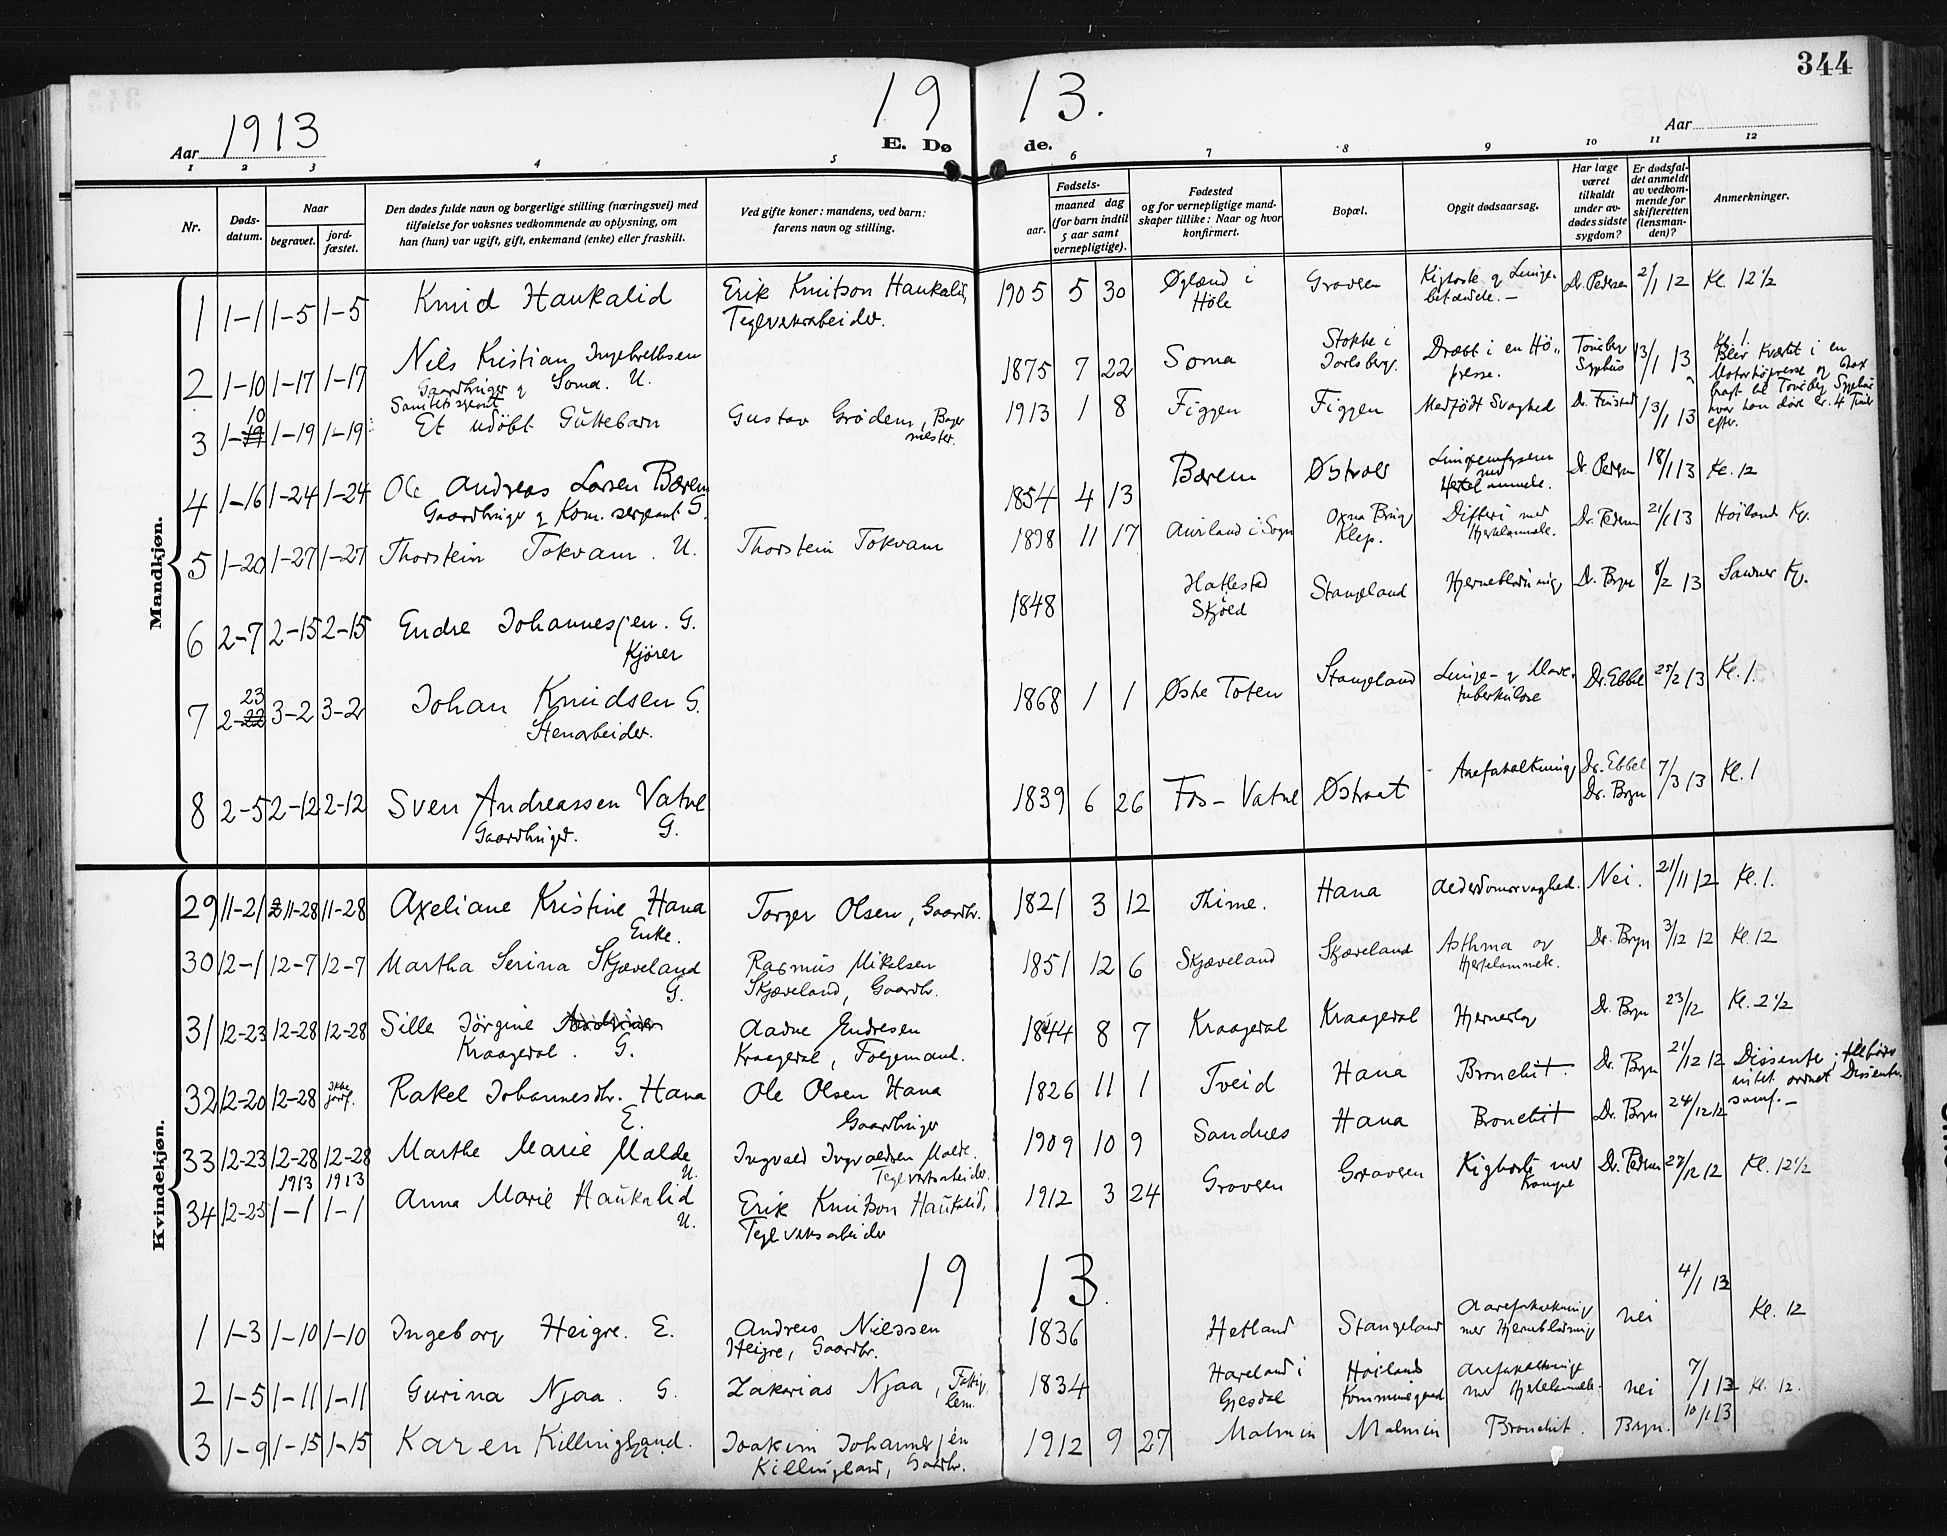 344
19 13.
Aar 1913
E. Dø de.
Aar
1 2 3 4 5 6 7 8 9 10 11 12
Nr.
Døds-
datum.
Naar
begravet.
jord-
fæstet.
Den dødes fulde navn og borgerlige stilling (næringsvei) med
tilføielse for voksnes vedkommende av oplysning, om
han (hun) var ugift, gift, enkemand (enke) eller fraskilt.
Ved gifte koner: mandens, ved barn:
farens navn og stilling.
Fødsels-
aar.
maaned dag
(for barn indtil
5 aar samt
vernepligtige).
Fødested
og for vernepligtige mand-
skaper tillike: Naar og hvor
konfirmert.
Bopæl.
Opgit dødsaarsag.
Har læge
været
tilkaldt
under av-
dødes sidste
sygdom?
Er dødsfal-
det anmeldt
av vedkom-
mende for
skifteretten
(lensman-
den)?
Anmerkninger.
Mandkjøn.
1 1-1 1-5 1-5 Knud Haukalid Erik Knutson Haukalid,
Teglverksarbeider. 1905 5 30 Øgland i
Höle Gravsen Kighoste q Lunge-
betændelse. Dr. Pedersen 2/1 12 Kl. 12½
2 1-10 1-17 1-17 Nils Kristian Ingebretsen
Gaardbruger q Soma. U.
1875 7 22 Soma Stokke i
Jarlsberg. Dræbt i en Hö-
presse. 13/1 13 Kl. 1.
Blev kvæstet i en
Motorhøpresse og
hvor han døde ca. 4 Timer
efter.
3 1-10 1-19 1-19 Et udöbt Guttebarn Gustav Grödem, Bager
mester. 1913 1 8 Figgen Figgen Medfödt Svaghed 13/1 13
4 1-16 1-24 1-24 Ole Andreas Larsen Bærem
Gaardbruger q Kom. sergeant G. 1854 4 13 Bærem Østraat Lungeemfysem
med
Hjertelammelse. Dr. Pedersen 18/1 13 Kl. 12
5 1-20 1-27 1-27 Thorstein Tokvam. U. Thorstein Tokvam 1898 11 17 Aurland i Sogn
Klep. Difteri med
Hjertelammelse. Dr. Pedersen 21/1 13 Höiland Kg.
6 2-7 2-15 2-15 Endre Johannesen. G.
Kjører 1848 Hatlestad
Skjold Stangeland Hjerneblödning Dr. Bryn 8/2 13 Sandnes Kg.
7 2-23 3-2 3-2 Johan Knudsen G.
Stenarbeider. 1868 1 1 Østre Toten Stangeland Lunge- q Mave-
tuberkulose Dr. Ebbel 25/2 13 Kl. 1.
8 2-5 2-12 2-12 Sven Andreassen Vatne
Gaardbruger. G. 1839 6 26 Fos-Vatne Østraat Aareforkalkning Dr. Ebbel
Dr. Bryn 7/3 13 Kl. 1
Kvindekjøn.
29 11-21 11-28 11-28 Axeliane Kristine Hana
Enke. Torger Olsen, Gaardbr. 1821 3 12 Thime. Hana Alderdomssvaghed. Nei. 21/11 12 Kl. 1.
30 12-1 12-7 12-7 Martha Serina Skjæveland
G. Rasmus Mikalsen
Skjæveland, Gaardbr. 1851 12 6 Skjæveland Skjæveland Asthma og
Hjertelammelse. Dr. Bryn 3/12 12 Kl. 12
31 12-23 12-28 12-28 Sille Jörgine
Kraagedal. G. Aadne Endresen
Kraagedal, Folgemand. 1844 8 7 Kraagedal Kraagedal Hjerneslag Dr. Bryn 23/12 Kl. 2½
32 12-20 12-28 Ikke
jordf. Rakel Johannesdtr. Hana
E. Ole Olsen Hana
Gaardbruger 1826 11 1 Tveid Hana Bronchit. Dr. Bryn 21/12 12 Dissenter; tilhörer
intet ordnet Dissenter-
samf.
33 12-23 12-28 12-28 Marthe Marie Malde
U. Ingvald Ingvaldsen Malde.
Teglverksarbeider. 1909 10 9 Sandnes Hana Bronchit Dr. Bryn 24/12 12
34 12-25 1913 1-1 1913 1-1 Anna Marie Haukalid
U. Erik Knutson Haukalid,
Teglverksarbeider 1912 3 24 Gravsen Gravsen Kighoste med
Krampe Dr. Pedersen 27/12 12 Kl. 12½
19 13.
1 1-3 1-10 1-10 Ingeborg Heigre. E. Andreas Nielssen
Heigre, Gaardbr. 1836 Hetland Stangeland Aareforkalkning
med Hjerneblödning nei 4/1 13 Kl. 12
2 1-5 1-11 1-11 Gurina Njaa. G. Zakarias Njaa, Fattig
lem. 1834 Haveland i
Gjesdal Höiland
Kommunegaard Aareforkalkning
med Hjertelammelse. nei 7/1 13 Kl. 12.
3 1-9 1-15 1-15 Karen Killingland. Joakim Johannesen
Killingland, Gaardbr. 1912 9 27 Malmin Malmin Bronchit. Bryn. 10/1 13